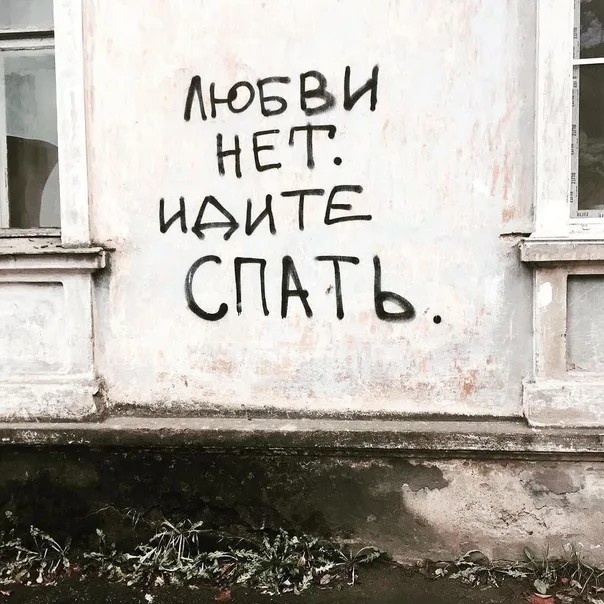 ЛЮБВИ
НЕТ.
ИДИТЕ
СПАТЬ.